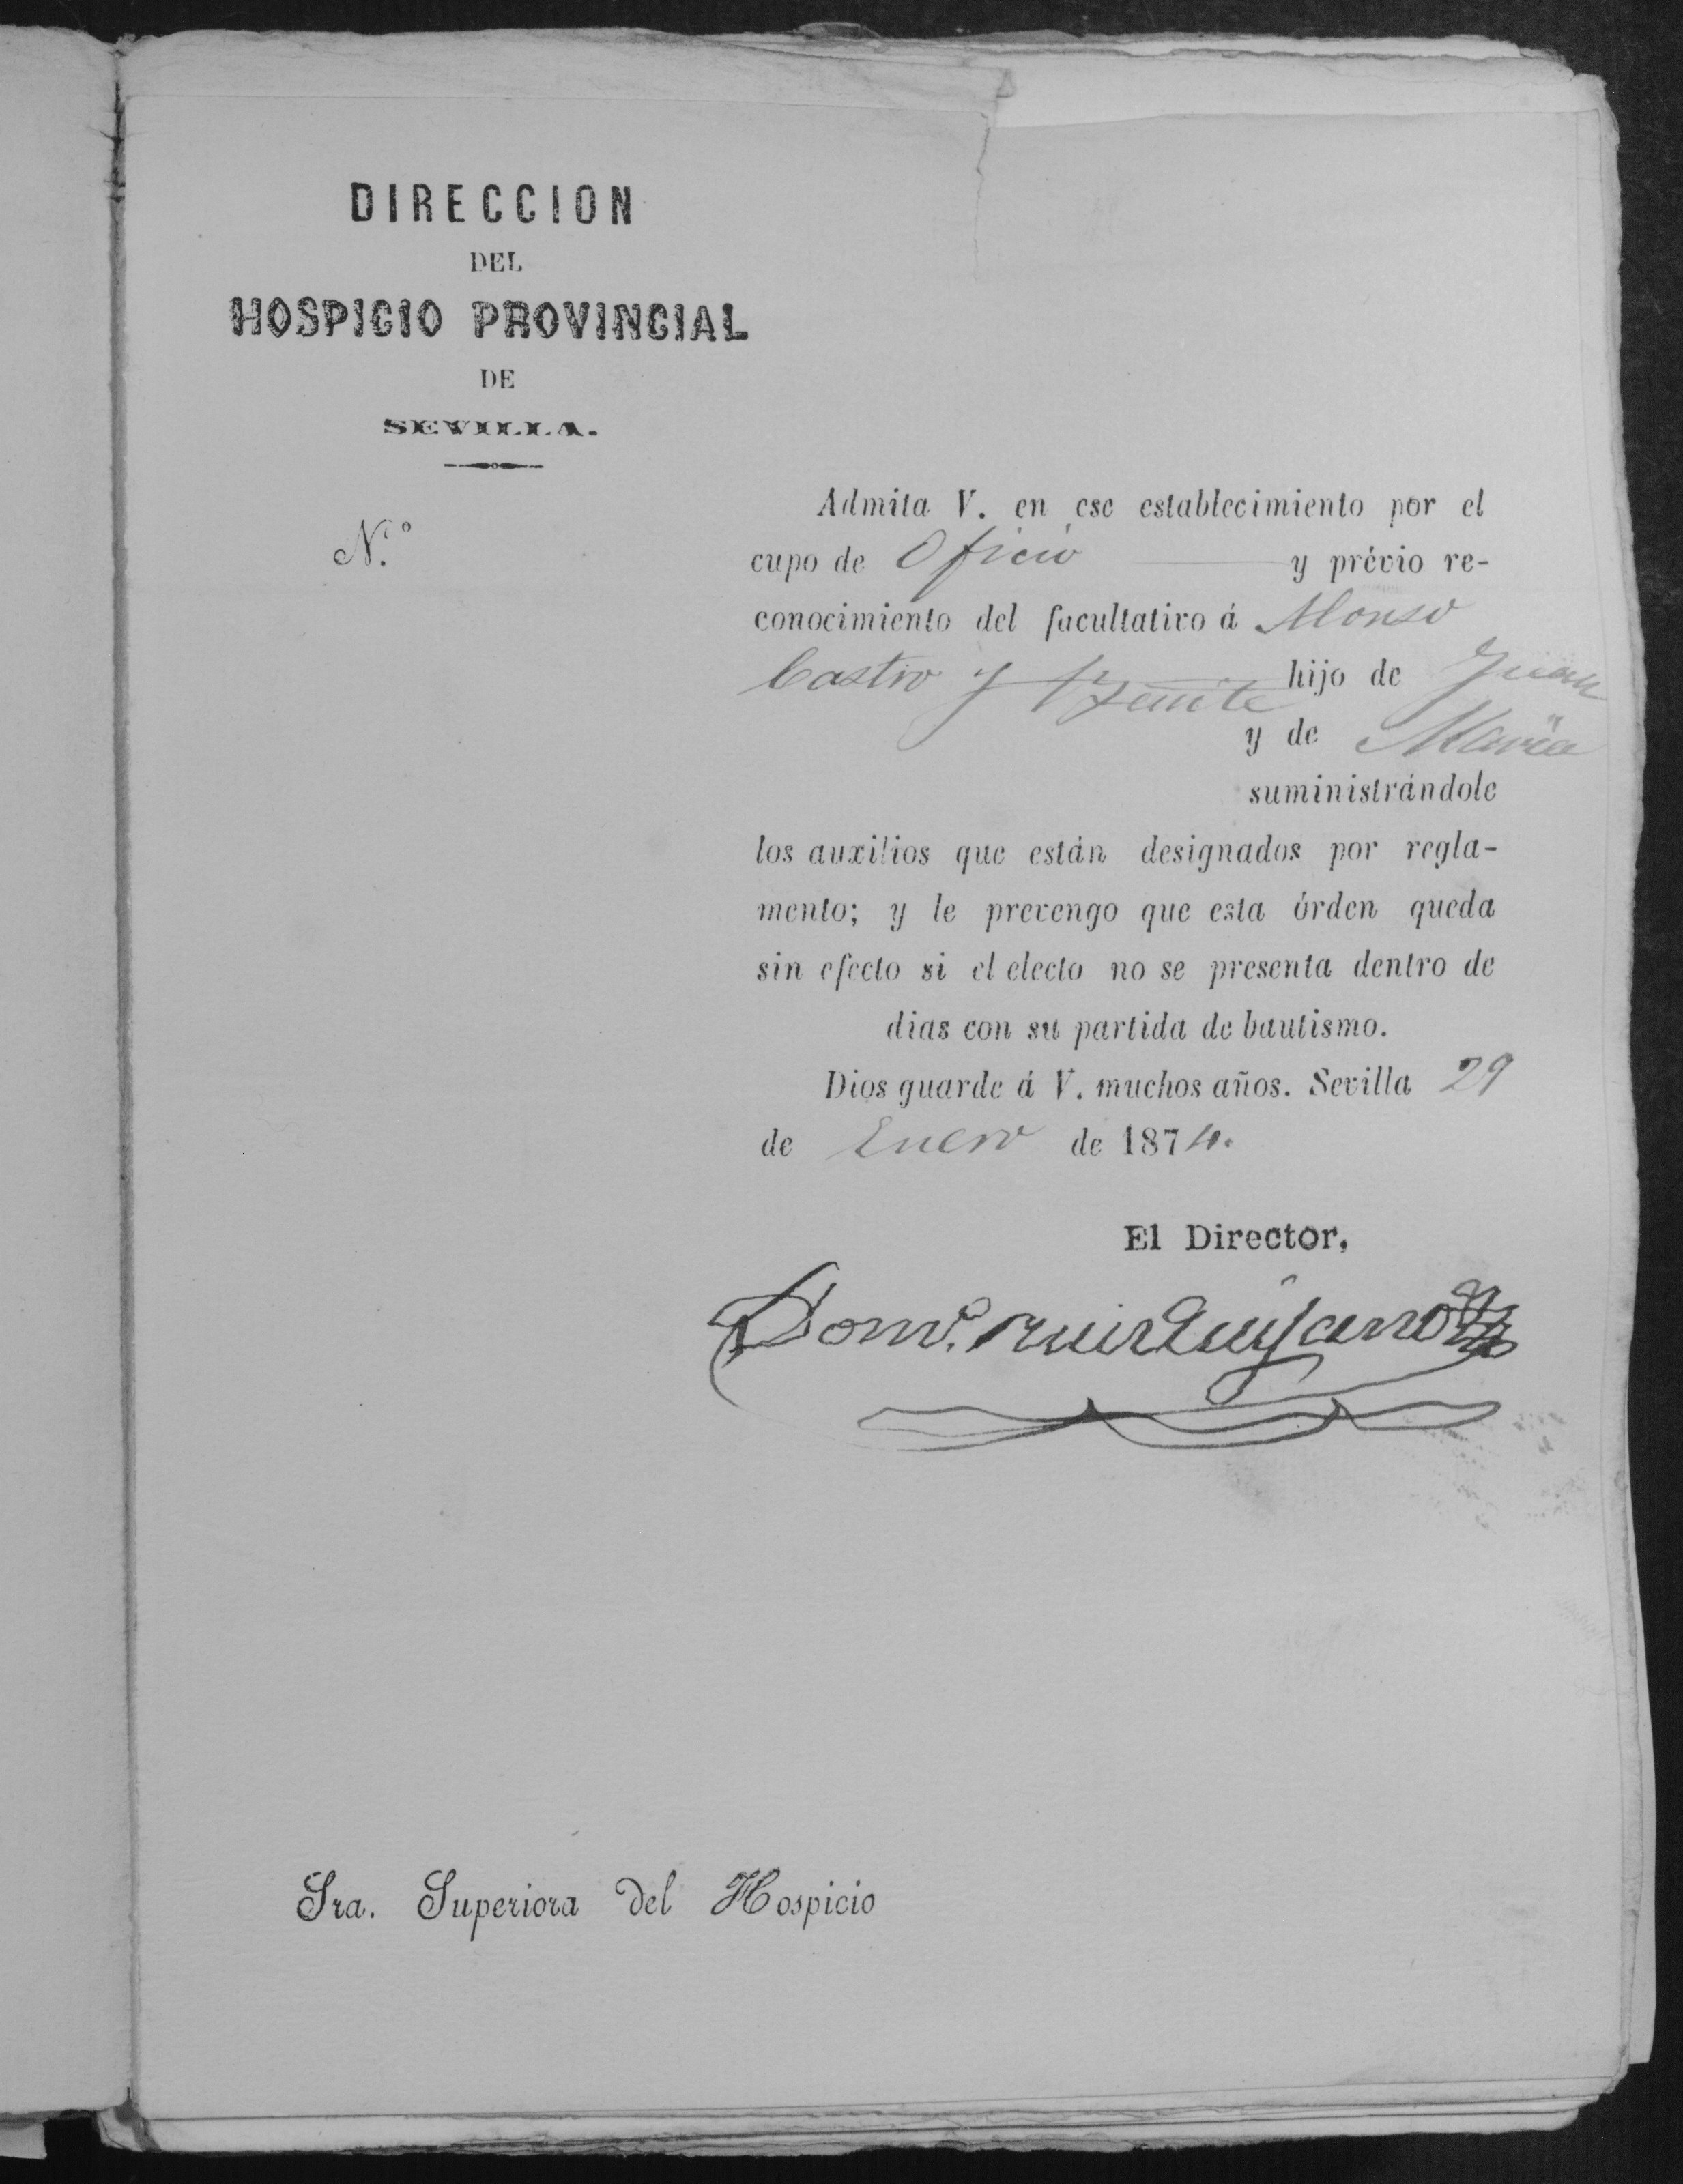 DIRECCION
DEL
HOSPICIO PROVINCIAL
DE
SEVILLA.
N.º
Admita V. en ese establecimiento por el
cupo de Oficio y prévio re-
conocimiento del facultativo á Alonso
Castro y hijo de Juan
y de Maria
suministrándole
los auxilios que están designados por regla-
mento; y le prevengo que esta órden queda
sin efecto si el electo no se presenta dentro de
dias con su partida de bautismo.
Dios guarde á V. muchos años. Sevilla 29
de Enero de 1874.
El Director,
Domº. Ruiz Quijano
Sra. Superiora del Hospicio